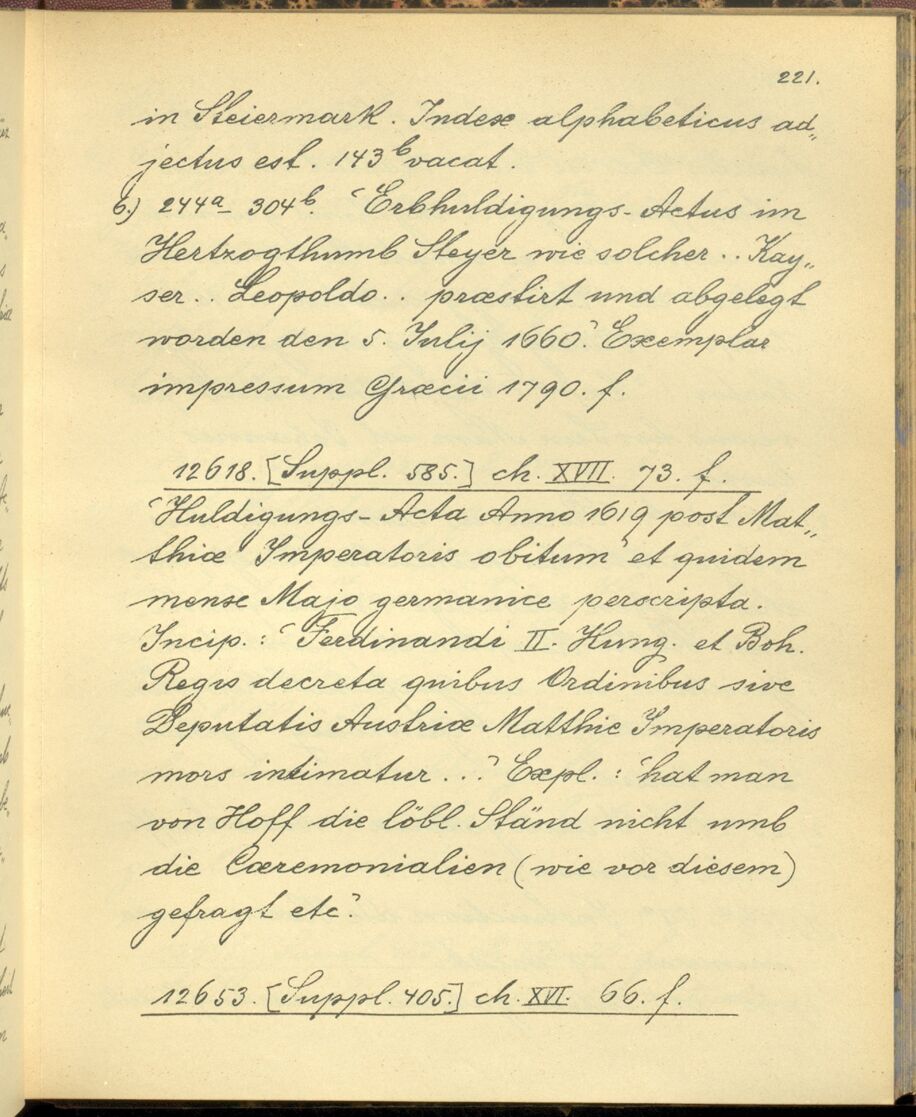 221.
in Steiermark. Index alphabeticus ad„
jectus est. 143ᵇ vacat.
6.) 244ᵃ - 304ᵇ. 'Erbhuldigungs-Actus im
Hertzogthumb Steyer wie solcher .. Kay„
ser .. Leopoldo .. præstirt und abgelegt
worden den 5. Julij 1660'. Exemplar
impressum Græcii 1790. f.
12618. [Suppl. 585.] ch. XVII. 73. f.
'Huldigungs-Acta Anno 1619 post Mat„
thiæ Imperatoris obitum' et quidem
mense Majo germanice perscripta.
Incip.: 'Ferdinandi II. Hung. et Boh.
Regis decreta quibus Ordinibus sive
Deputatis Austriæ Matthie Imperatoris
mors intimatur ...' Expl.: 'hat man
von Hoff die löbl. Ständ nicht umb
die Cæremonialien (wie vor diesem)
gefragt etc'.
12653. [Suppl. 405.] ch. XVI. 66. f.